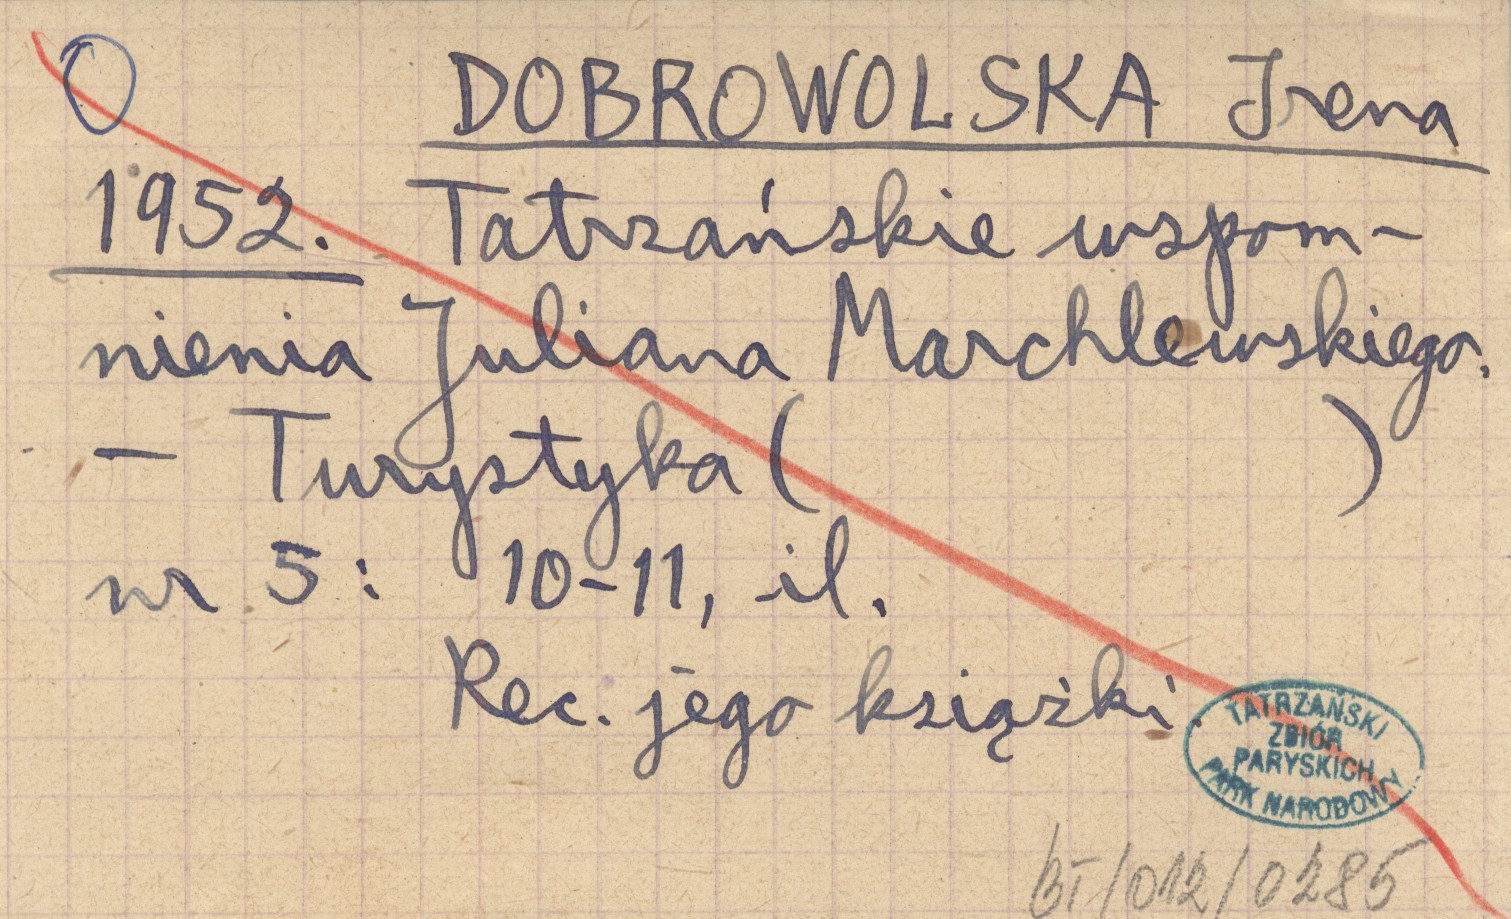 DOBROWOLSKA Irena
1952. Tatrzańskie wspom-
nienia Juliana Marchlewskiego.
- Turystyka ( )
nr 5: 10-11, il.
Rec. jego książki.
TATRZAŃSKI
ZBIÓR
PARYSKICH
PARK NARODOWY
BT/012/0285